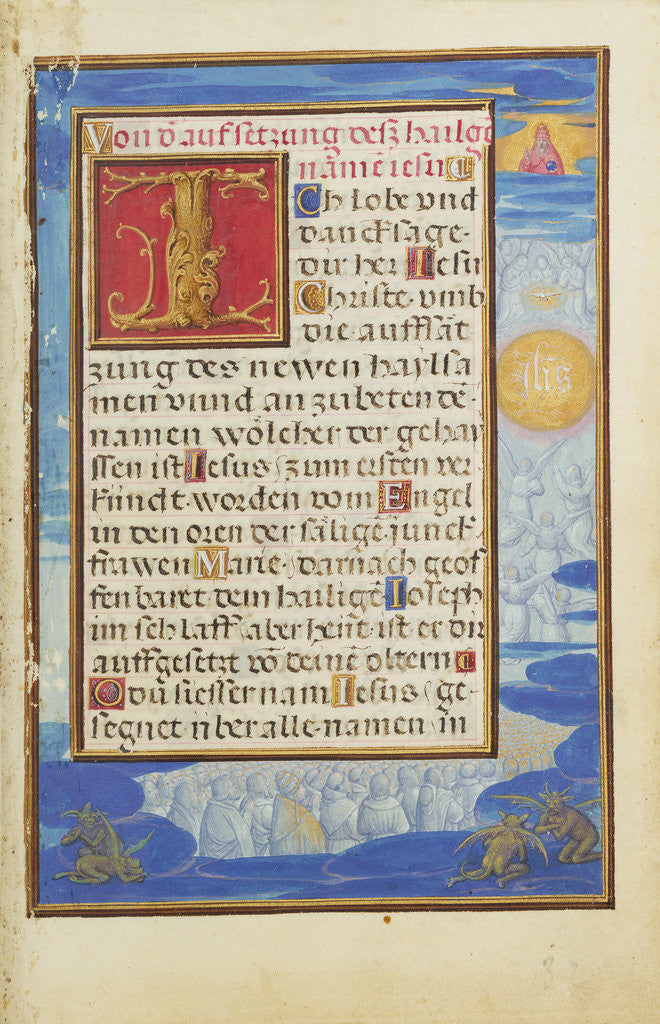 Von d̄ aufsetzung desz hailgē
namē iesu
Ich lobe vnd
danck sage·
dir her Iesu
Christe· vmb
die auffsāt
zung des newen haylsa
men vnnd an zu beten dē·
namen wölcher der gehay
ssen ist Iesus/ zum ersten ver
kündt· worden vom Engel
in den oren der sälige· junck
frawen Marie·/ darnach geof
fenbaret dem hailigē Ioseph
im schlaff/ aber heüt ist er dir
auffgesetzt vō deinē öltern
O du siesser nam Iesus/ ge·
segnet über alle· namen/ in
Jhs
32